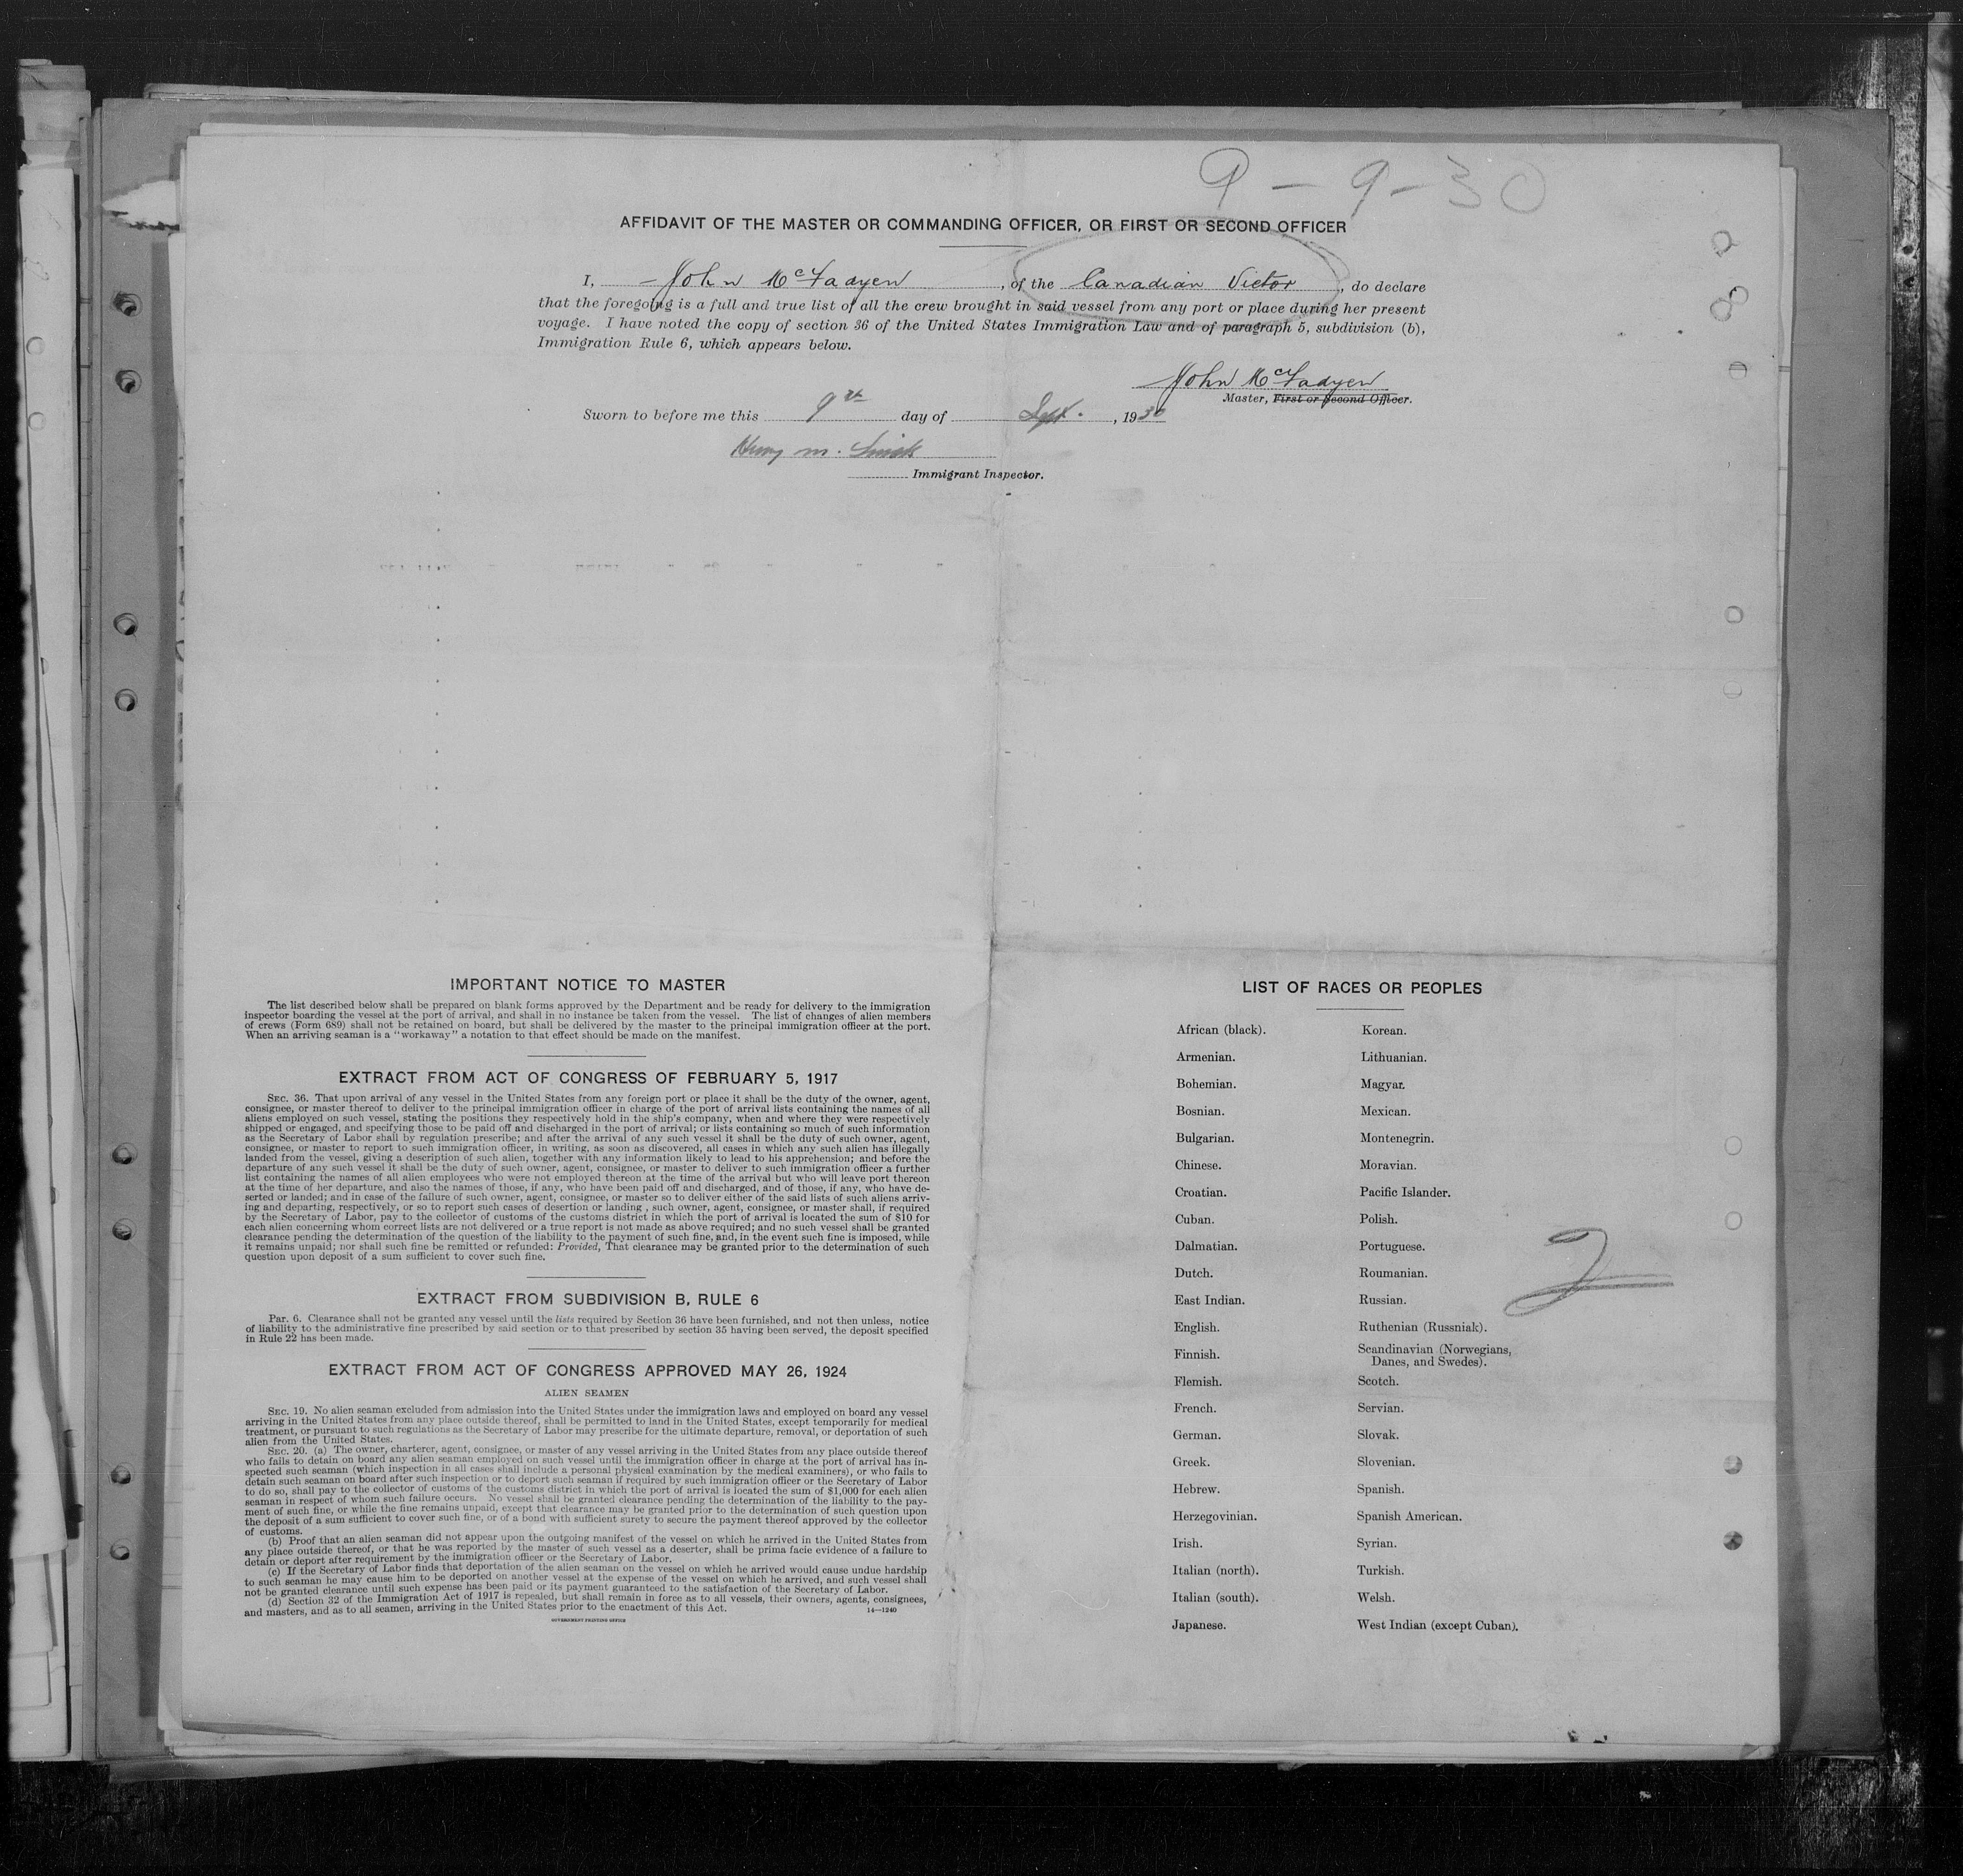 9-9-30
AFFIDAVIT OF THE MASTER OR COMMANDING OFFICER, OR FIRST OR SECOND OFFICER
I, John McFadyen, of the Canadian Victor, do declare
that the foregoing is a full and true list of all the crew brought in said vessel from any port or place during her present
voyage. I have noted the copy of section 36 of the United States Immigration Law and of paragraph 5, subdivision (b),
Immigration Rule 6, which appears below.
John McFadyen
Master, First or Second Officer.
Sworn to before me this 9th day of Sept., 1930
m.
Immigrant Inspector.
IMPORTANT NOTICE TO MASTER
The list described below shall be prepared on blank forms approved by the Department and be ready for delivery to the immigration
inspector boarding the vessel at the port of arrival, and shall in no instance be taken from the vessel. The list of changes of alien members
of crews (Form 689) shall not be retained on board, but shall be delivered by the master to the principal immigration officer at the port.
When an arriving seaman is a "workaway" a notation to that effect should be made on the manifest.
EXTRACT FROM ACT OF CONGRESS OF FEBRUARY 5, 1917
SEC. 36. That upon arrival of any vessel in the United States from any foreign port or place it shall be the duty of the owner, agent,
consignee, or master thereof to deliver to the principal immigration officer in charge of the port of arrival lists containing the names of all
aliens employed on such vessel, stating the positions they respectively hold in the ship's company, when and where they were respectively
shipped or engaged, and specifying those to be paid off and discharged in the port of arrival; or lists containing so much of such information
as the Secretary of Labor shall by regulation prescribe; and after the arrival of any such vessel it shall be the duty of such owner, agent,
consignee, or master to report to such immigration officer, in writing, as soon as discovered, all cases in which any such alien has illegally
landed from the vessel, giving a description of such alien, together with any information likely to lead to his apprehension; and before the
departure of any such vessel it shall be the duty of such owner, agent, consignee, or master to deliver to such immigration officer a further
list containing the names of all alien employees who were not employed thereon at the time of the arrival but who will leave port thereon
at the time of her departure, and also the names of those, if any, who have been paid off and discharged, and of those, if any, who have de-
serted or landed; and in case of the failure of such owner, agent, consignee, or master so to deliver either of the said lists of such aliens arriv-
ing and departing, respectively, or so to report such cases of desertion or landing , such owner, agent, consignee, or master shall, if required
by the Secretary of Labor, pay to the collector of customs of the customs district in which the port of arrival is located the sum of $10 for
each alien concerning whom correct lists are not delivered or a true report is not made as above required; and no such vessel shall be granted
clearance pending the determination of the question of the liability to the payment of such fine, and, in the event such fine is imposed, while
it remains unpaid; nor shall such fine be remitted or refunded: Provided, That clearance may be granted prior to the determination of such
question upon deposit of a sum sufficient to cover such fine.
EXTRACT FROM SUBDIVISION B, RULE 6
Par. 6. Clearance shall not be granted any vessel until the lists required by Section 36 have been furnished, and not then unless, notice
of liability to the administrative fine prescribed by said section or to that prescribed by section 35 having been served, the deposit specified
in Rule 22 has been made.
EXTRACT FROM ACT OF CONGRESS APPROVED MAY 26, 1924
ALIEN SEAMEN
SEC. 19. No alien seaman excluded from admission into the United States under the immigration laws and employed on board any vessel
arriving in the United States from any place outside thereof, shall be permitted to land in the United States, except temporarily for medical
treatment, or pursuant to such regulations as the Secretary of Labor may prescribe for the ultimate departure, removal, or deportation of such
alien from the United States.
SEC. 20. (a) The owner, charterer, agent, consignee, or master of any vessel arriving in the United States from any place outside thereof
who fails to detain on board any alien seaman employed on such vessel until the immigration officer in charge at the port of arrival has in-
spected such seaman (which inspection in all cases shall include a personal physical examination by the medical examiners), or who fails to
detain such seaman on board after such inspection or to deport such seaman if required by such immigration officer or the Secretary of Labor
to do so, shall pay to the collector of customs of the customs district in which the port of arrival is located the sum of $1,000 for each alien
seaman in respect of whom such failure occurs. No vessel shall be granted clearance pending the determination of the liability to the pay-
ment of such fine, or while the fine remains unpaid, except that clearance may be granted prior to the determination of such question upon
the deposit of a sum sufficient to cover such fine, or of a bond with sufficient surety to secure the payment thereof approved by the collector
of customs.
(b) Proof that an alien seaman did not appear upon the outgoing manifest of the vessel on which he arrived in the United States from
any place outside thereof, or that he was reported by the master of such vessel as a deserter, shall be prima facie evidence of a failure to
detain or deport after requirement by the immigration officer or the Secretary of Labor.
(c) If the Secretary of Labor finds that deportation of the alien seaman on the vessel on which he arrived would cause undue hardship
to such seaman he may cause him to be deported on another vessel at the expense of the vessel on which he arrived, and such vessel shall
not be granted clearance until such expense has been paid or its payment guaranteed to the satisfaction of the Secretary of Labor.
(d) Section 32 of the Immigration Act of 1917 is repealed, but shall remain in force as to all vessels, their owners, agents, consignees,
and masters, and as to all seamen, arriving in the United States prior to the enactment of this Act.
14—1240
GOVERNMENT PRINTING OFFICE
LIST OF RACES OR PEOPLES
African (black).
Armenian.
Bohemian.
Bosnian.
Bulgarian.
Chinese.
Croatian.
Cuban.
Dalmatian.
Dutch.
East Indian.
English.
Finnish.
Flemish.
French.
German.
Greek.
Hebrew.
Herzegovinian.
Irish.
Italian (north).
Italian (south).
Japanese.
Korean.
Lithuanian.
Magyar.
Mexican.
Montenegrin.
Moravian.
Pacific Islander.
Polish.
Portuguese.
Roumanian.
Russian.
Ruthenian (Russniak).
Scandinavian (Norwegians,
Danes, and Swedes).
Scotch.
Servian.
Slovak.
Slovenian.
Spanish.
Spanish American.
Syrian.
Turkish.
Welsh.
West Indian (except Cuban).
2